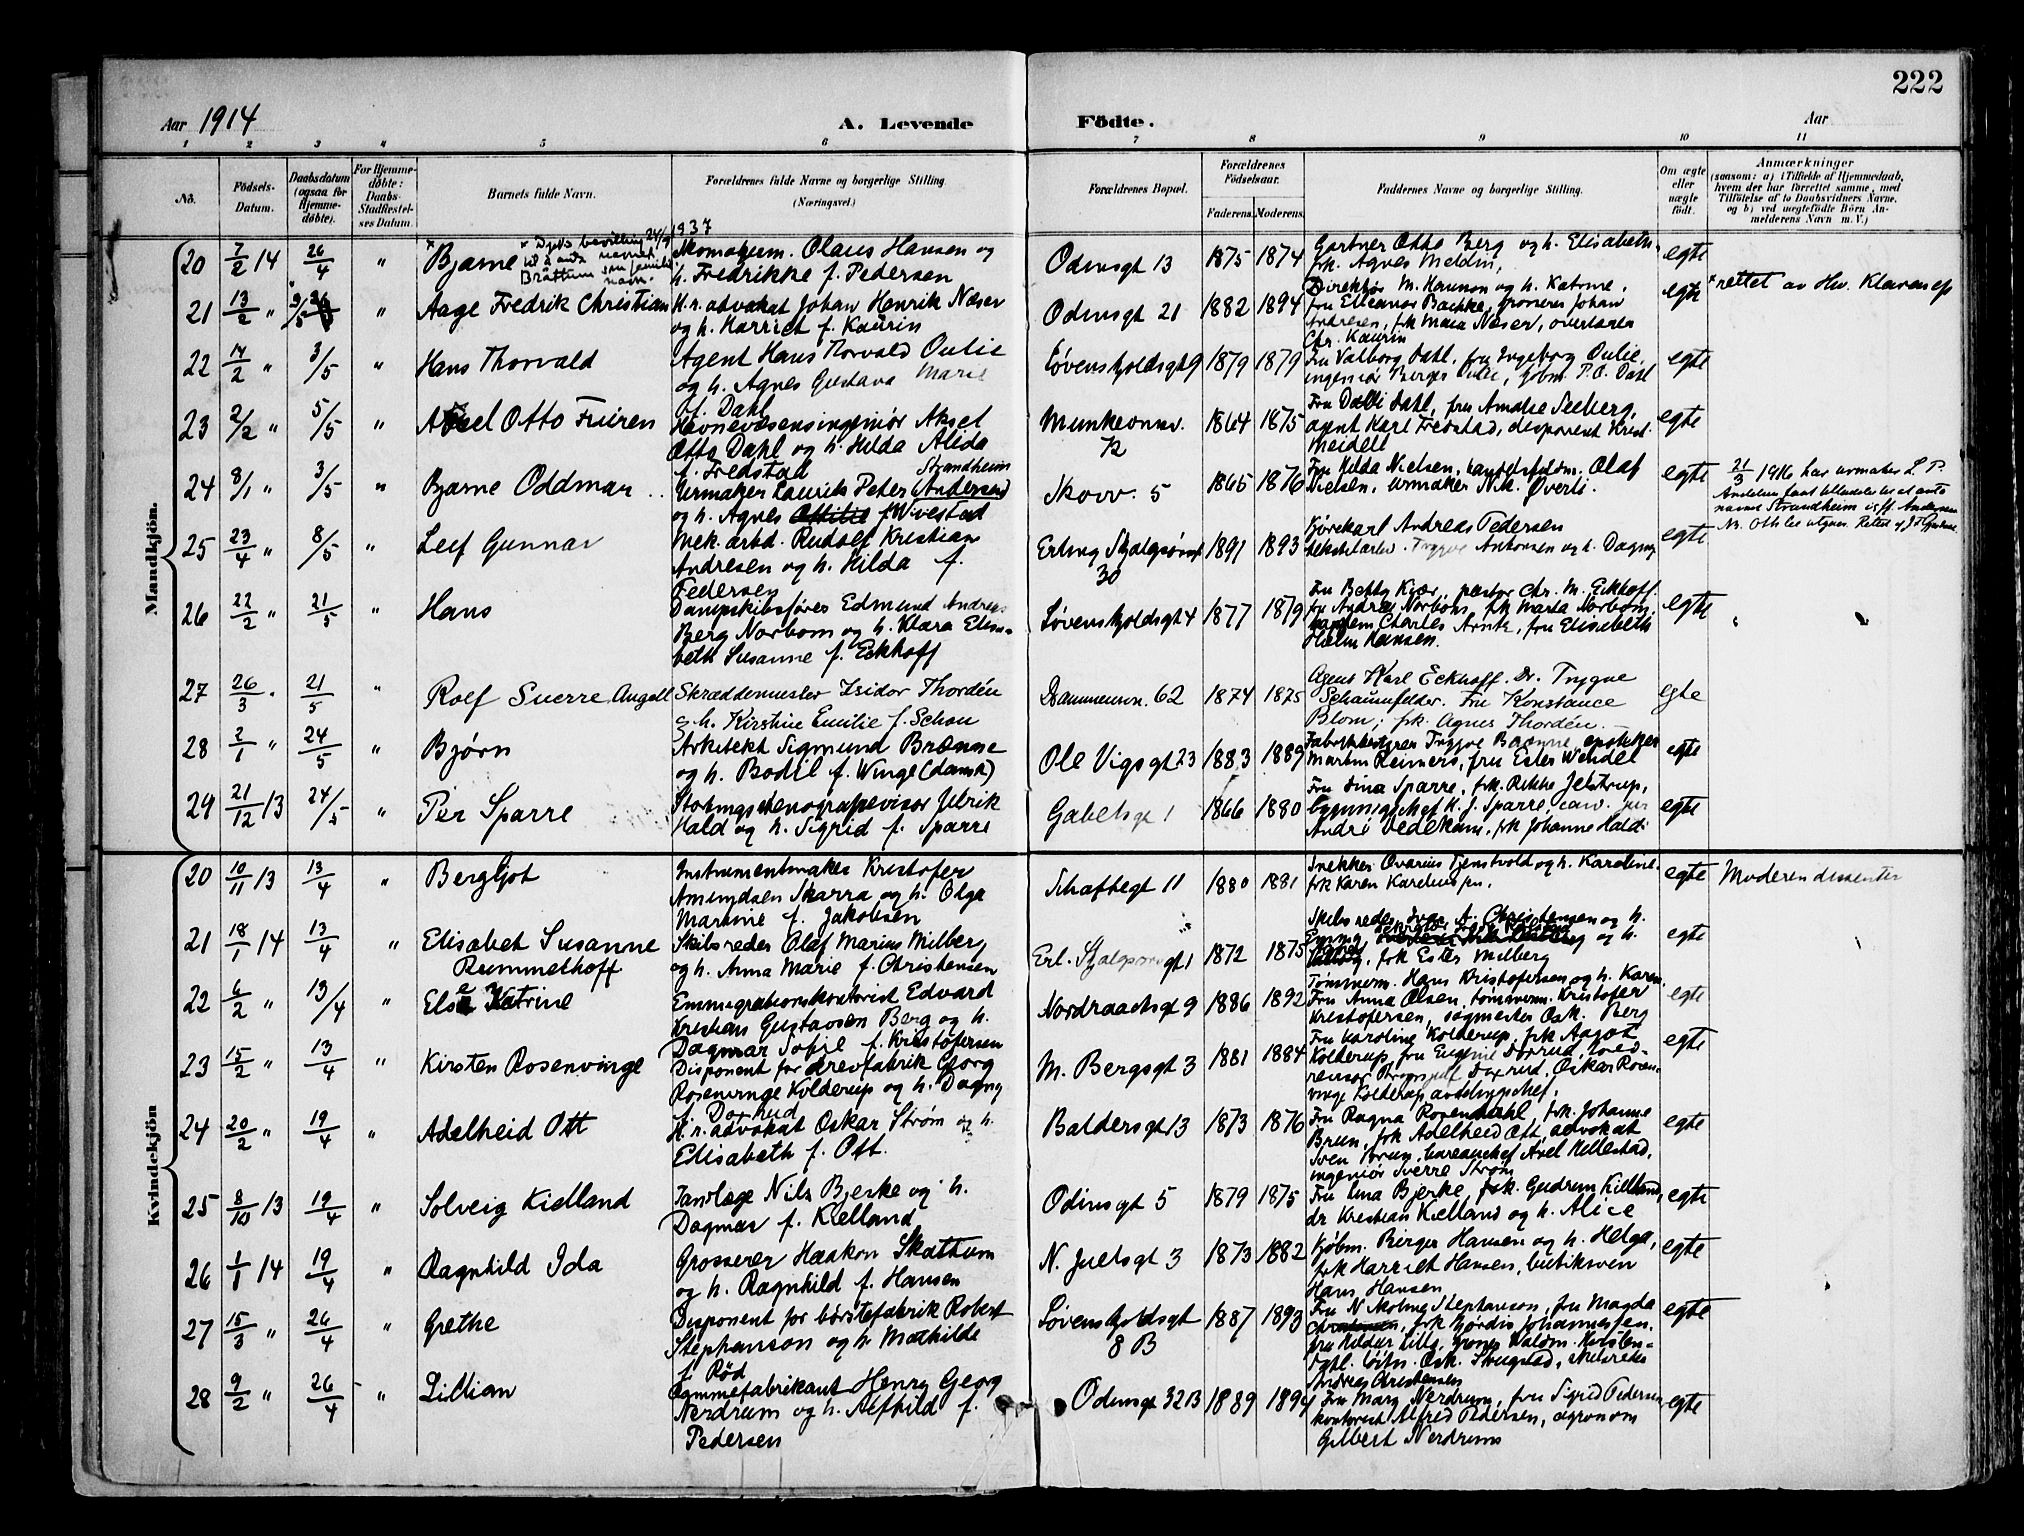 222
Aar 1914
A. Levende
Födte.
Aar
1 2 3 4 5 6 7 8 9 10 11
No.
Födsels-Datum.
Daabsdatum (ogsaa for Hjemme-døbte).
For Hjemme-døbte: Daabs-Stadfæstel-ses Datum.
Barnets fulde Navn.
Forældrenes fulde Navne og borgerlige Stilling.
(Næringsvei.)
Forældrenes Bopæl.
Forældrenes Födselsaar.
Faderens. Moderens.
Faddernes Navne og borgerlige Stilling.
Om ægte eller uægte født.
Anmærkninger
(saasom: a) i Tilfælde af Hjemmedaab,
hvem der har forrettet samme, med
Tilföielse af to Daabsvidners Navne.
og b) ved uægtefødte Börn An-
melderens Navn m. V.)
Mandkjön.
20 7/2 14 26/4 " Bjarne
24/9 1937
Brattum som familie navn.
Skomakerm. Olaus Hansen og
h. Fredrikke f. Pedersen
Odinsgt 13 1875 1874
Gartner Otto Berg og h. Elisabeth.
frk. Agnes Meldin,
egte
21 13/2 " 3/5 " Aage Fredrik Christian
H. r. advokat Johan Henrik Næser
og h. Harriet f. Kaurin
Odinsgt 21 1882 1894
Direktør M. Hannon og h. Katrine,
fru Elleanor Bachke, grosserer Johan
Andresen, frk Maia Næser, overlærer
Chr. Kaurin
egte
rettet av Hw. Klavenes
22 14/2 " 3/5 " Hans Thorvald
Agent Hans Thorvald Oulie
og h. Agnes Gustava Marie
f. Dahl
Løvenskjoldsgt 9 1879 1879
Fru Valborg Dahl, fru Ingeborg Oulie,
ingeniør Berger Oulie, kjøbm. P. O. Dahl
egte
23 2/2 " 5/5 " Aksel Otto Friren
Havnevæsensingeniør Aksel
Otto Dahl og h. Hilda Alida
f. Fredstad
Munkedamsv. 72 1864 1875
Fru Dalli Dahl, fru Amalie Seeberg,
agent Karl Fredstad, disponent Krist.
Meidell
egte
24 8/1 " 3/5 " Bjarne Oddmar
Urmaker Laurits Peter Andersen
Strandheim
og h. Agnes Ottilie f Wivestad
Skovv. 5 1865 1876
Fru Hilda Nielsen, handelsfuldm. Olaf
Nielsen, urmaker Nik. Øverli.
egte
21/3 1916 har urmaker L. P.
Andersen faat tilladelse til at anta
navnet Strandheim isf. Andersen
25 23/4 " 8/5 " Leif Gunnar
Mek. arbd. Rudolf Kristian
Andresen og h. Hilda f.
Pedersen
Erling Skjalgsøns gt 30 1891 1893
Kjørekarl Andreas Pedersen
Trygve Antonsen og h. Dagny
egte
26 22/2 " 21/5 " Hans
Dampskibsfører Edmund Andreas
Berg Norbom og h. Klara Elisa-
beth Susanne f. Eckhoff
Løvenskjoldsgt 4 1877 1879
Fru Betty Kiær, pastor Chr. M. Eckhoff.
fru Andrea Norbom, frk Marta Norbom,
kaptein Charles Arntz, fru Elisabeth
Holm Hansen.
egte
27 26/3 " 21/5 " Rolf Sverre Angell
Skræddermester Isidor Thordén
og h. Kirstine Emilie f. Schou
Drammensv. 62 1874 1875
Agent Karl Eckhoff. Dr. Trygve
Schaumfelder. Fru Konstance
Blom; frk. Agnes Thordén.
egte
28 2/1 " 24/5 " Bjørn
Arkitekt Sigmund Brænne
og h. Bodil f. Winge (dansk)
Ole Vigsgt 23 1883 1889
Fabrikbestyrer Trygve Brænne, apoteker
Martin Reimers, fru Ester Wendel
egte
29 21/12 13 24/5 " Per Sparre
Stortingsstenografrevisor Ulrik
Hald og h. Sigrid f. Sparre
Gabelsgt 1 1866 1880
Fru Dina Sparre, frk. Rikke Jelstrup,
bygningschef H. J. Sparre, cand. jur
André Vedekam, frk Johanne Hald
egte
Kvindekjön
20 10/11 13 13/4 " Bergljot
Instrumentmaker Kristofer
Amundsen Skarra og h. Olga
Marine f. Jakobsen
Schaftegt 11 1880 1881
Snekker Ovarius Tjenstvold og h. Karoline.
frk Karen Karelius
egte
Moderen dissenter
21 18/1 14 13/4 " Elisabet Susanne
Rummelhoff
Skibsreder Olaf Marius Milberg
og h. Anna Marie f. Christensen
Erl. Skjalgssønsgt 1 1872 1875
Skibsreder Ivar A. Christensen og h.
frk Ester Milberg
egte
22 6/2 " 13/4 " Else Katrine
Emmigrationskontorist Edvard
Kristian Gustavsen Berg og h.
Dagmar Sofie f. Kristofersen
Nordraachsgt 9 1886 1892
Tømmerm. Hans Kristofersen og h. Karen
Fru Anna Olsen, tømmerm. Kristofer
Kristofersen, sagmester Osk. Berg
egte
23 15/2 " 13/4 " Kirsten Rosenvinge
Disponent for drevfabrik Georg
Rosenvinge Kolderup og h. Dagny
f. Doxrud
M. Bergsgt 3 1881 1884
Fru Karoline Kolderup, frk Aagot
Kolderup, fru Eugenie Doxrud,
Doxrud, Oskar Rosen-
vinge Kolderup, avdelingschef.
egte
24 20/2 " 19/4 " Adelheid Ott
H. r. advokat Oskar Strøm og h.
Elisabeth f. Ott.
Baldersgt 13 1873 1876
Fru Ragna Rosendahl, frk. Johanne
Brun, frk Adelheid Ott, advokat
Sven Brun, bureauchef Axel Hellestad,
ingeniør Sverre Strøm
egte
25 8/10 13 19/4 " Solveig Kielland
Tandlæge Nils Bjerke og h.
Dagmar f. Kielland
Odinsgt 5 1879 1875
Fru Lina Bjerke, frk. Gudrun Kielland,
dr Kristian Kielland og h. Alice
egte
26 1/1 14 19/4 " Ragnhild Ida
Grosserer Haakon Skattum
og h. Ragnhild f. Hansen
N. Juelsgt 3 1873 1882
Kjøbm. Birger Hansen og h. Helga,
frk Harriet Hansen, butiksven
Hans Hansen
egte
27 15/3 " 26/4 " Grethe
Disponent for børstefabrik Robert
Stephanson og h. Mathilde
f. Rød
Løvenskjoldsgt 8 B 1887 1893
Fru N. Stephanson, fru Magda
frk Hjørdis Johannesen.
løitn. Osk. Skugstad, skibsreder
Andreas Christensen
egte
28 9/2 " 26/4 " Lillian
Gummefabrikant Henry Georg
Nerdrum og h. Alfhild f.
Pedersen
Odinsgt 32 B 1889 1894
Fru Mary Nerdrum, fru Sigrid Pedersen
kontorist Alfred Pedersen, agronom
Gilbert Nerdrum
egte